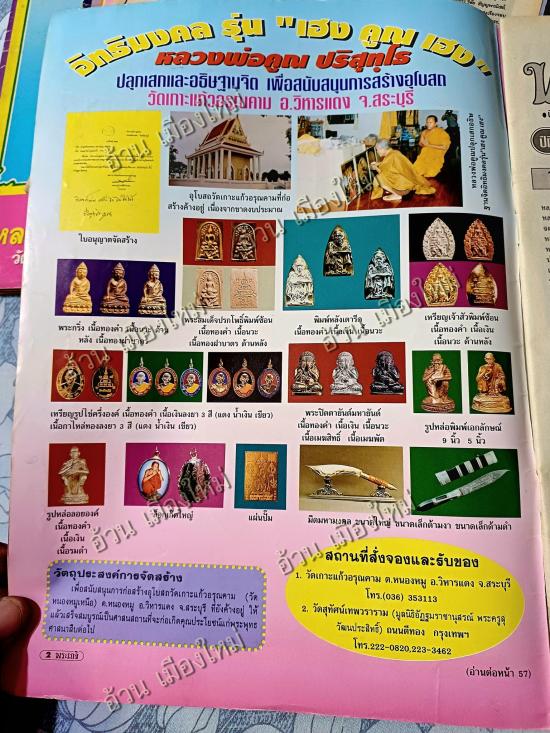 อิทธิมงคล รุ่น "เฮง คูณ เฮง"
หลวงพ่อคูณ ปริสุทฺโธ
ปลุกเสกและอธิษฐานจิต เพื่อสนับสนุนการสร้างอุโบสถ
วัดเกาะแก้วอรุณคาม อ.วิหารแดง จ.สระบุรี
ใบอนุญาตจัดสร้าง
อุโบสถวัดเกาะแก้วอรุณคามที่ก่อ
สร้างค้างอยู่ เนื่องจากขาดงบประมาณ
หลวงพ่อคูณปลุกเสกและอธิ
ษฐานจิตอิทธิมงคลรุ่น"เฮง คูณ เฮง"
พระกริ่ง เนื้อทองคำ เนื้อนวะ ด้าน
หลัง เนื้อทองฝาบาตร
พระสมเด็จปรกโพธิ์พิมพ์ซ้อน
เนื้อทองคำ เนื้อนวะ
เนื้อทองฝาบาตร ด้านหลัง
พิมพ์หลังเตารีด
เนื้อทองคำ เนื้อเงิน เนื้อนวะ
เหรียญเจ้าสัวพิมพ์ซ้อน
เนื้อทองคำ เนื้อเงิน
เนื้อนวะ ด้านหลัง
เหรียญรูปไข่ครึ่งองค์ เนื้อทองคำ เนื้อเงินลงยา 3 สี (แดง น้ำเงิน เขียว)
เนื้อกาไหล่ทองลงยา 3 สี (แดง น้ำเงิน เขียว)
พระปิดตายันต์มหายันต์
เนื้อทองคำ เนื้อเงิน เนื้อนวะ
เนื้อเมฆสิทธิ์ เนื้อเมฆพัด
รูปหล่อพิมพ์เอกลักษณ์
9 นิ้ว 5 นิ้ว
รูปหล่อลอยองค์
เนื้อทองคำ
เนื้อเงิน
เนื้อรมดำ
แผ่นปั๊ม
มีดมหามงคล ขนาดใหญ่ ขนาดเล็กด้ามงา ขนาดเล็กด้ามดำ
วัตถุประสงค์การจัดสร้าง
เพื่อสนับสนุนการก่อสร้างอุโบสถวัดเกาะแก้วอรุณคาม (วัด
หนองหมูเหนือ) ต.หนองหมู อ.วิหารแดง จ.สระบุรี ที่ยังค้างอยู่ ให้
แล้วเสร็จสมบูรณ์เป็นศาสนสถานที่จะก่อเกิดคุณประโยชน์แก่พระพุทธ
ศาสนาสืบต่อไป
สถานที่สั่งจองและรับของ
1. วัดเกาะแก้วอรุณคาม ต.หนองหมู อ.วิหารแดง จ.สระบุรี
โทร.(036) 353113
2. วัดสุทัศน์เทพวราราม (มูลนิธิอัฏฐมราชานุสรณ์ พระครูสุ
วัฒนประสิทธิ์) ถนนตีทอง กรุงเทพฯ
โทร.222-0820,223-3462
2 พระเกจิ
(อ่านต่อหน้า 57)
อ้วน เมืองใหม่
อ้วน เมืองใหม่
อ้วน เมืองใหม่
อ้วน เมืองใหม่
อ้วน เมืองใหม่
อ้วน เมืองใหม่
อ้วน เมืองใหม่
อ้วน เมืองใหม่